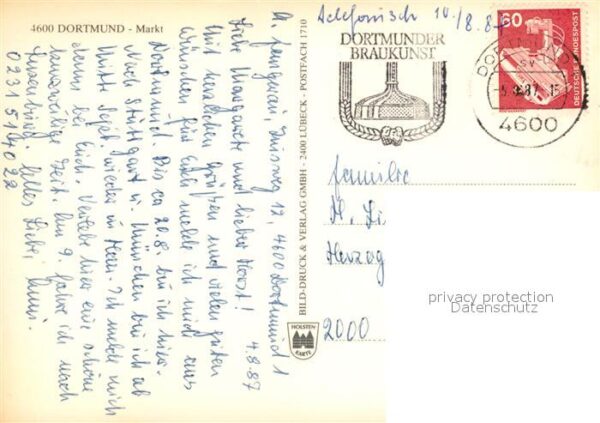 4600 DORTMUND - Markt
4600 Dortmund 1
4.8.87
Liebe Margarete und lieber Horst!
Mit herzlichen Grüßen und vielen guten
Wünschen für Euch melde ich mich aus
Dortmund. Bis ca 20.8. bin ich hier.
Nach Stuttgart u. München bin ich ab
Mitte Sept. wieder in Ich melde mich
dann bei Euch. Verlebe hier eine schöne
kurzweilige Zeit. Am 9. fahre ich nach
Alles Liebe,
0231 514022
BILD-DRUCK & VERLAG GMBH - 2400 LÜBECK - POSTFACH 1710
HOLSTEN
KARTE
Telefonisch 10/8.87
DORTMUNDER
BRAUKUNST
DORTMUND
-5.8.87
4600
60
DEUTSCHE BUNDESPOST
Familie
Herzog
2000
privacy protection
Datenschutz